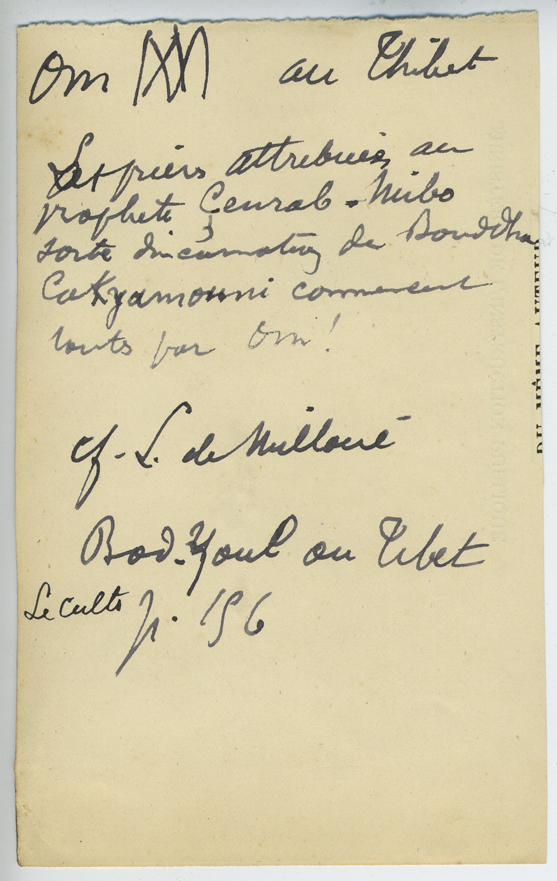 Om au Thibet
Les prières attribuées au
prophète Çenrab-Mibo
sorte d'incarnation du Bouddha
Cakyamouni commencent
touts par Om!
cf. L. de Milloué
Bod-Youl ou Tibet
Le culte p. 156
DU MÊME AUTEUR